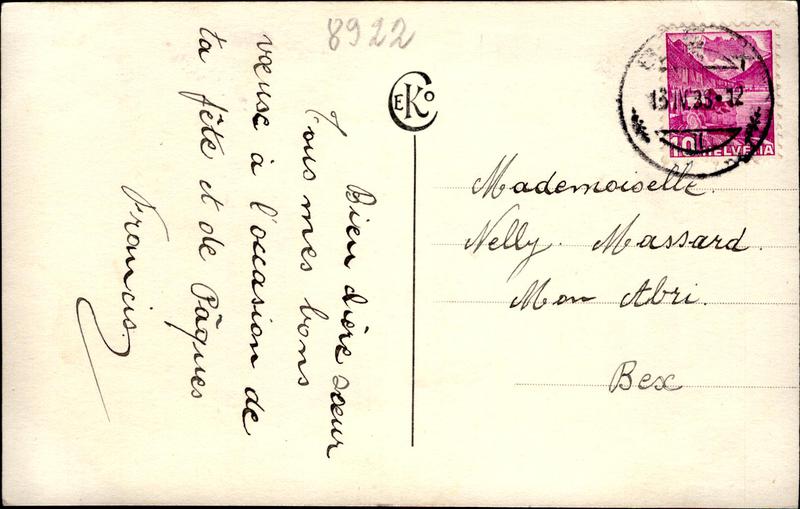 8922
EKO
Bien chère sœur
Tous mes bons
vœux à l'occasion de
ta fête et de Pâques
Francis.
13.IV.38-12
10 HELVETIA
Mademoiselle.
Nelly. Massard.
Mon Abri.
Bex